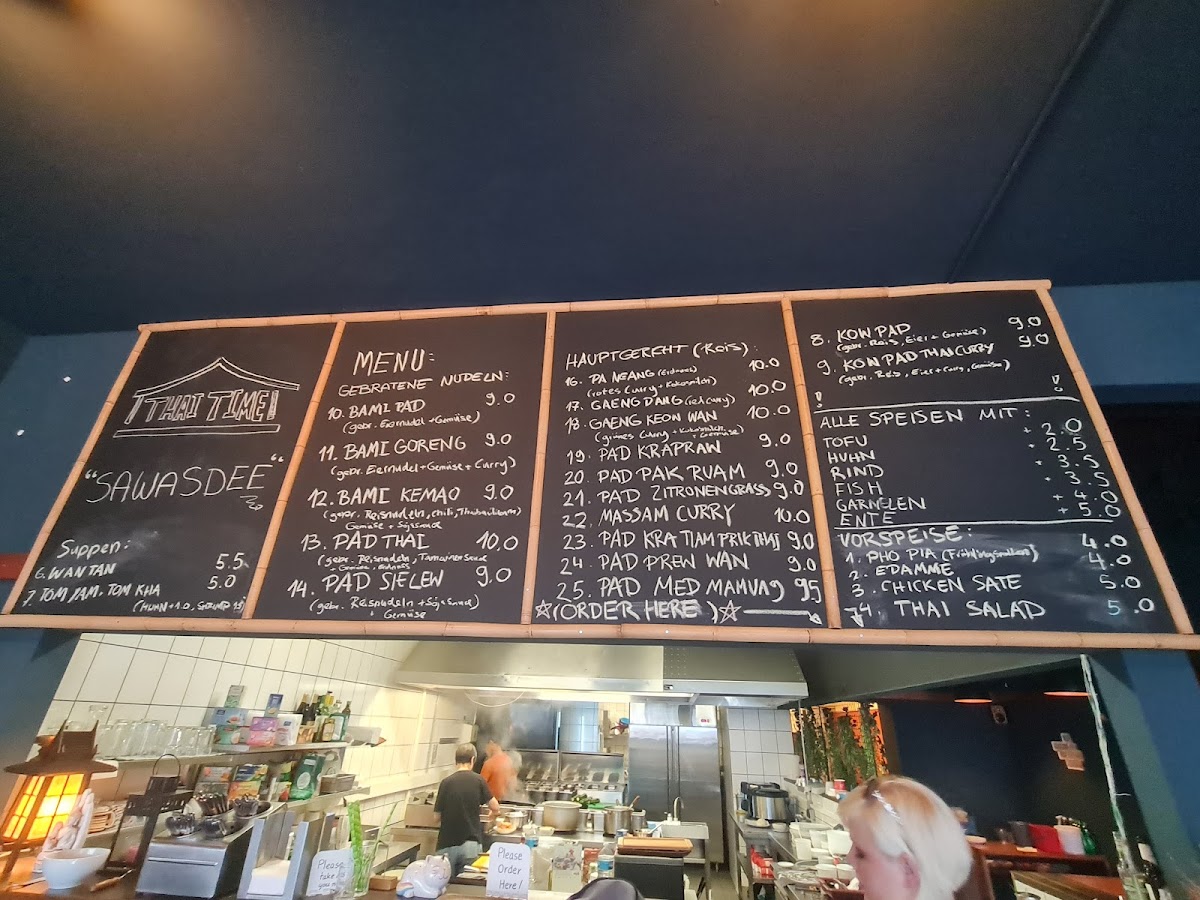 THAI TIME!
"SAWASDEE"
Suppen:
6. WAN TAN 5.5
7. TOM YAM. TOM KHA 5.0
(HUHN +1.0,
MENU:
GEBRATENE NUDELN:
10. BAMI PAD 9.0
(gebr. Eiernudel + Gemüse)
11. BAMI GORENG 9.0
(gebr. Eiernudel + Gemüse + Curry)
12. BAMI KEMAO 9.0
(gebr. Reisnudeln, chili,
Gemüse + Sojasauce
13. PAD THAI 10.0
(gebr. Reisnudeln,
14. PAD SIELEW 9.0
(gebr. Reisnudeln + Sojasauce)
+ Gemüse
HAUPTGERICHT (Reis):
16. PANEANG (Erdnuss) 10.0
(rotes Curry + Kokosmilch)
17. GAENG DANG (red curry) 10.0
18. GAENG KEOW WAN 10.0
(grünes Curry + Kokosmilch
+ Gemüse)
19. PAD KRAPRAW 9.0
20. PAD PAK RUAM 9.0
21. PAD ZITRONENGRASS 9.0
22. MASSAM CURRY 10.0
23. PAD KRATIAM PRIKTHAJ 9.0
24. PAD PREW WAN 9.0
25. PAD MED MAMUNG 95
☆(ORDER HERE)☆
8. KOW PAD 9.0
(gebr. Reis, Eier + Gemüse)
9. KOW PAD THAI CURRY 9.0
(gebr. Reis, Eier + Curry, Gemüse)
! !
ALLE SPEISEN MIT:
TOFU + 2.0
HUHN + 2.5
RIND + 3.5
FISH + 3.5
GARNELEN + 4.0
ENTE + 5.0
VORSPEISE:
1. PHO PIA (Frühlingsrollen) 4.0
2. EDAMME 4.0
3. CHICKEN SATE 5.0
4. THAI SALAD 5.0
Please
take
Please
Order
Here!